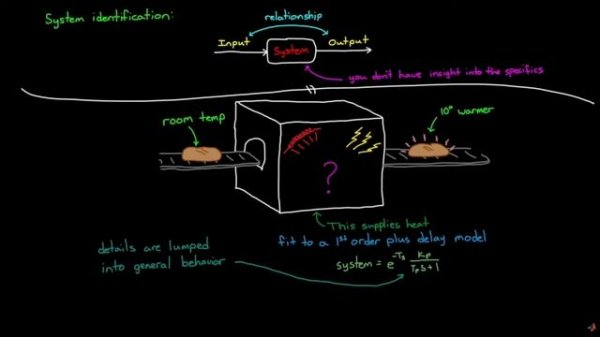 System identification:
relationship
Input
System
Output
you don't have insight into the specifics
room temp
10° warmer
?
This supplies heat
fit to a 1st order plus delay model
details are lumped
into general behavior
system = e^-Ts Kp / Tps+1